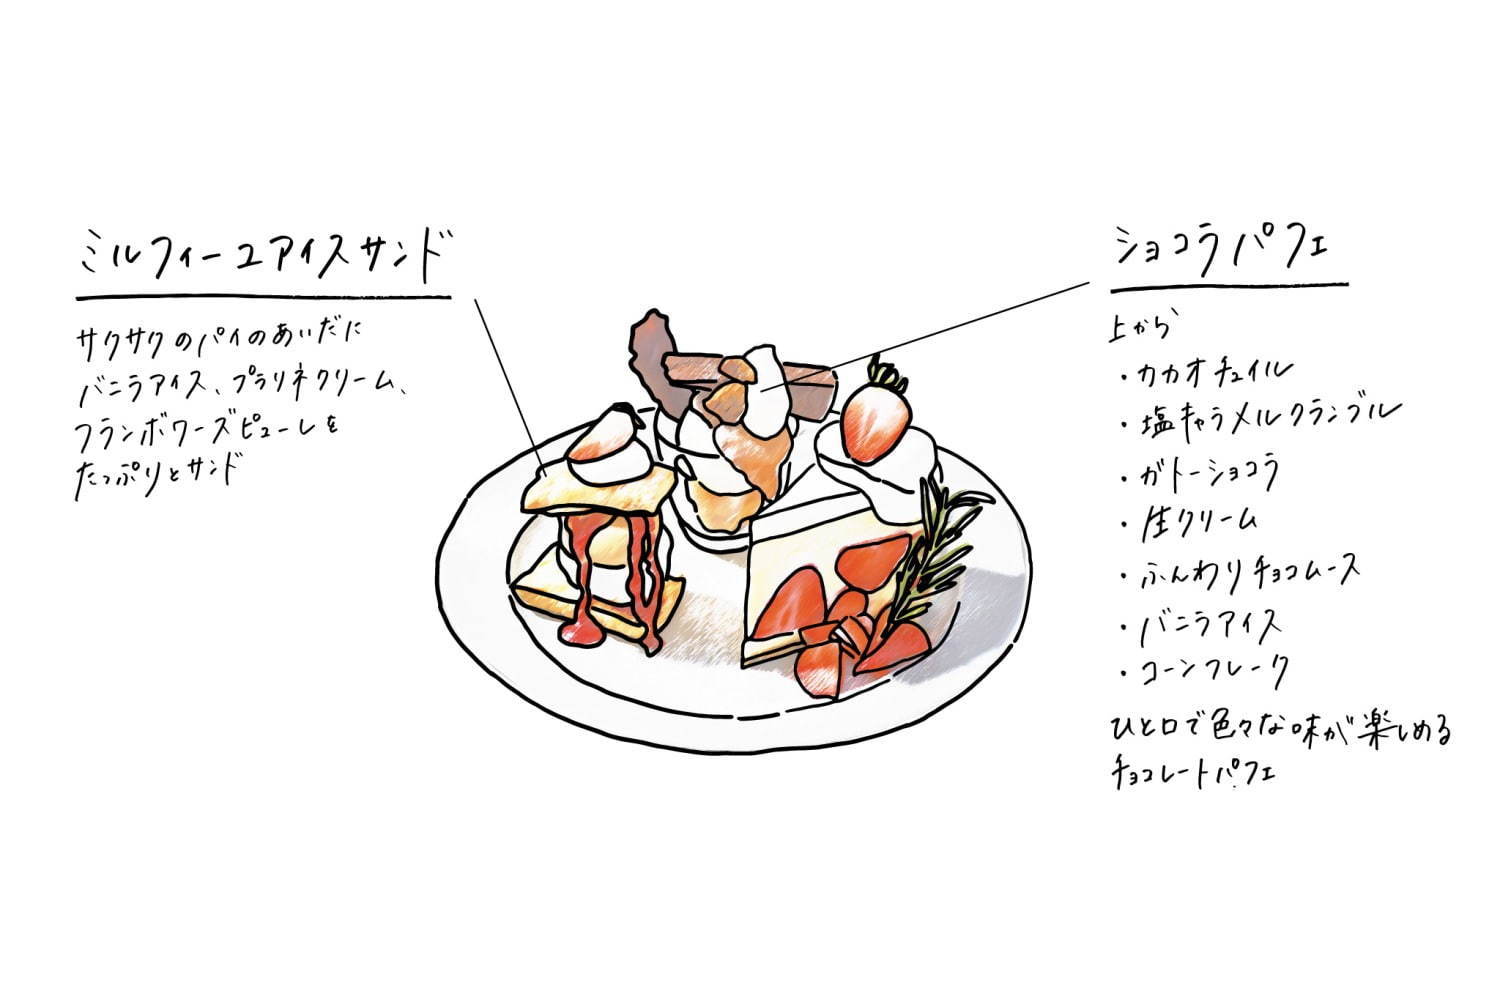 ミルフィーユアイスサンド
サクサクのパイのあいだに
バニラアイス、プラリネクリーム、
フランボワーズピューレを
たっぷりとサンド
ショコラパフェ
上から
・カカオチュイル
・塩キャラメルクランブル
・ガトーショコラ
・生クリーム
・ふんわりチョコムース
・バニラアイス
・コーンフレーク
ひと口で色々な味が楽しめる
チョコレートパフェ